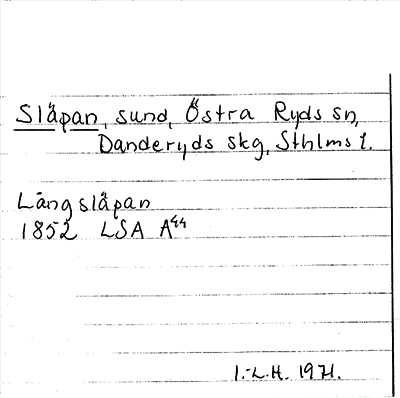 Släpan, sund, Östra Ryds sn,
Danderyds skg, Sthlms l.
Långsläpan
1852 LSA A44
I.-L.H. 1971.